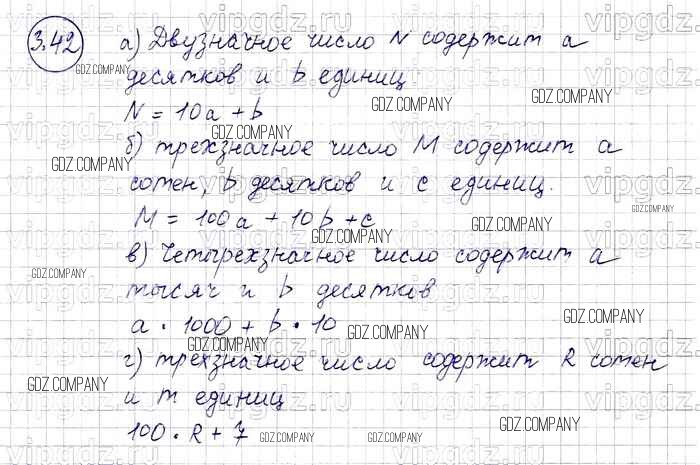 3.42 а) Двузначное число N содержит a
десятков и b единиц
N = 10a + b
б) трехзначное число M содержит a
сотен, b десятков и c единиц.
M = 100a + 10b + c
в) Четырехзначное число содержит a
тысяч и b десятков
a · 1000 + b · 10
г) трехзначное число содержит R сотен
и m единиц
100 · R + 7
vipgdz.ru
GDZ.COMPANY